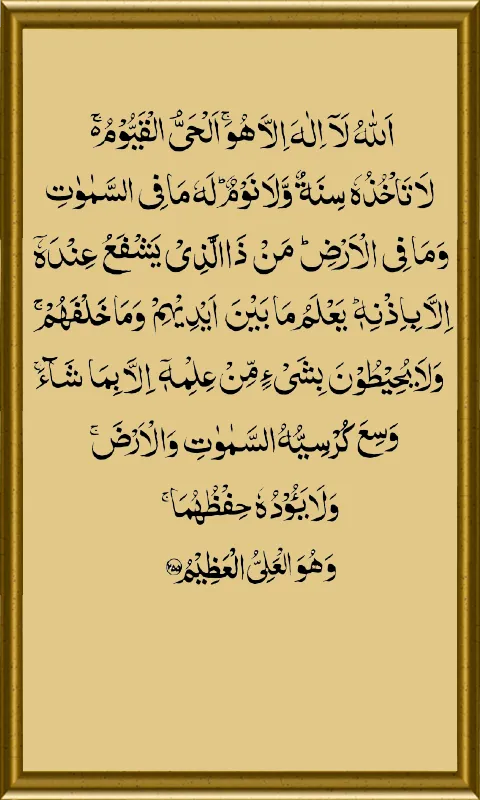 اَللّٰهُ لَاۤ اِلٰهَ اِلَّا هُوَۚ اَلْحَیُّ الْقَیُّوْمُ ەۚ
لَا تَاْخُذُهٗ سِنَةٌ وَّلَا نَوْمٌؕ لَهٗ مَا فِی السَّمٰوٰتِ
وَمَا فِی الْاَرْضِؕ مَنْ ذَا الَّذِیْ یَشْفَعُ عِنْدَهٗۤ
اِلَّا بِاِذْنِهٖؕ یَعْلَمُ مَا بَیْنَ اَیْدِیْهِمْ وَمَا خَلْفَهُمْۚ
وَلَا یُحِیْطُوْنَ بِشَیْءٍ مِّنْ عِلْمِهٖۤ اِلَّا بِمَا شَآءَۚ
وَسِعَ كُرْسِیُّهُ السَّمٰوٰتِ وَالْاَرْضَۚ
وَلَا یَـُٔوْدُهٗ حِفْظُهُمَاۚ
وَهُوَ الْعَلِیُّ الْعَظِیْمُ ۲۵۵